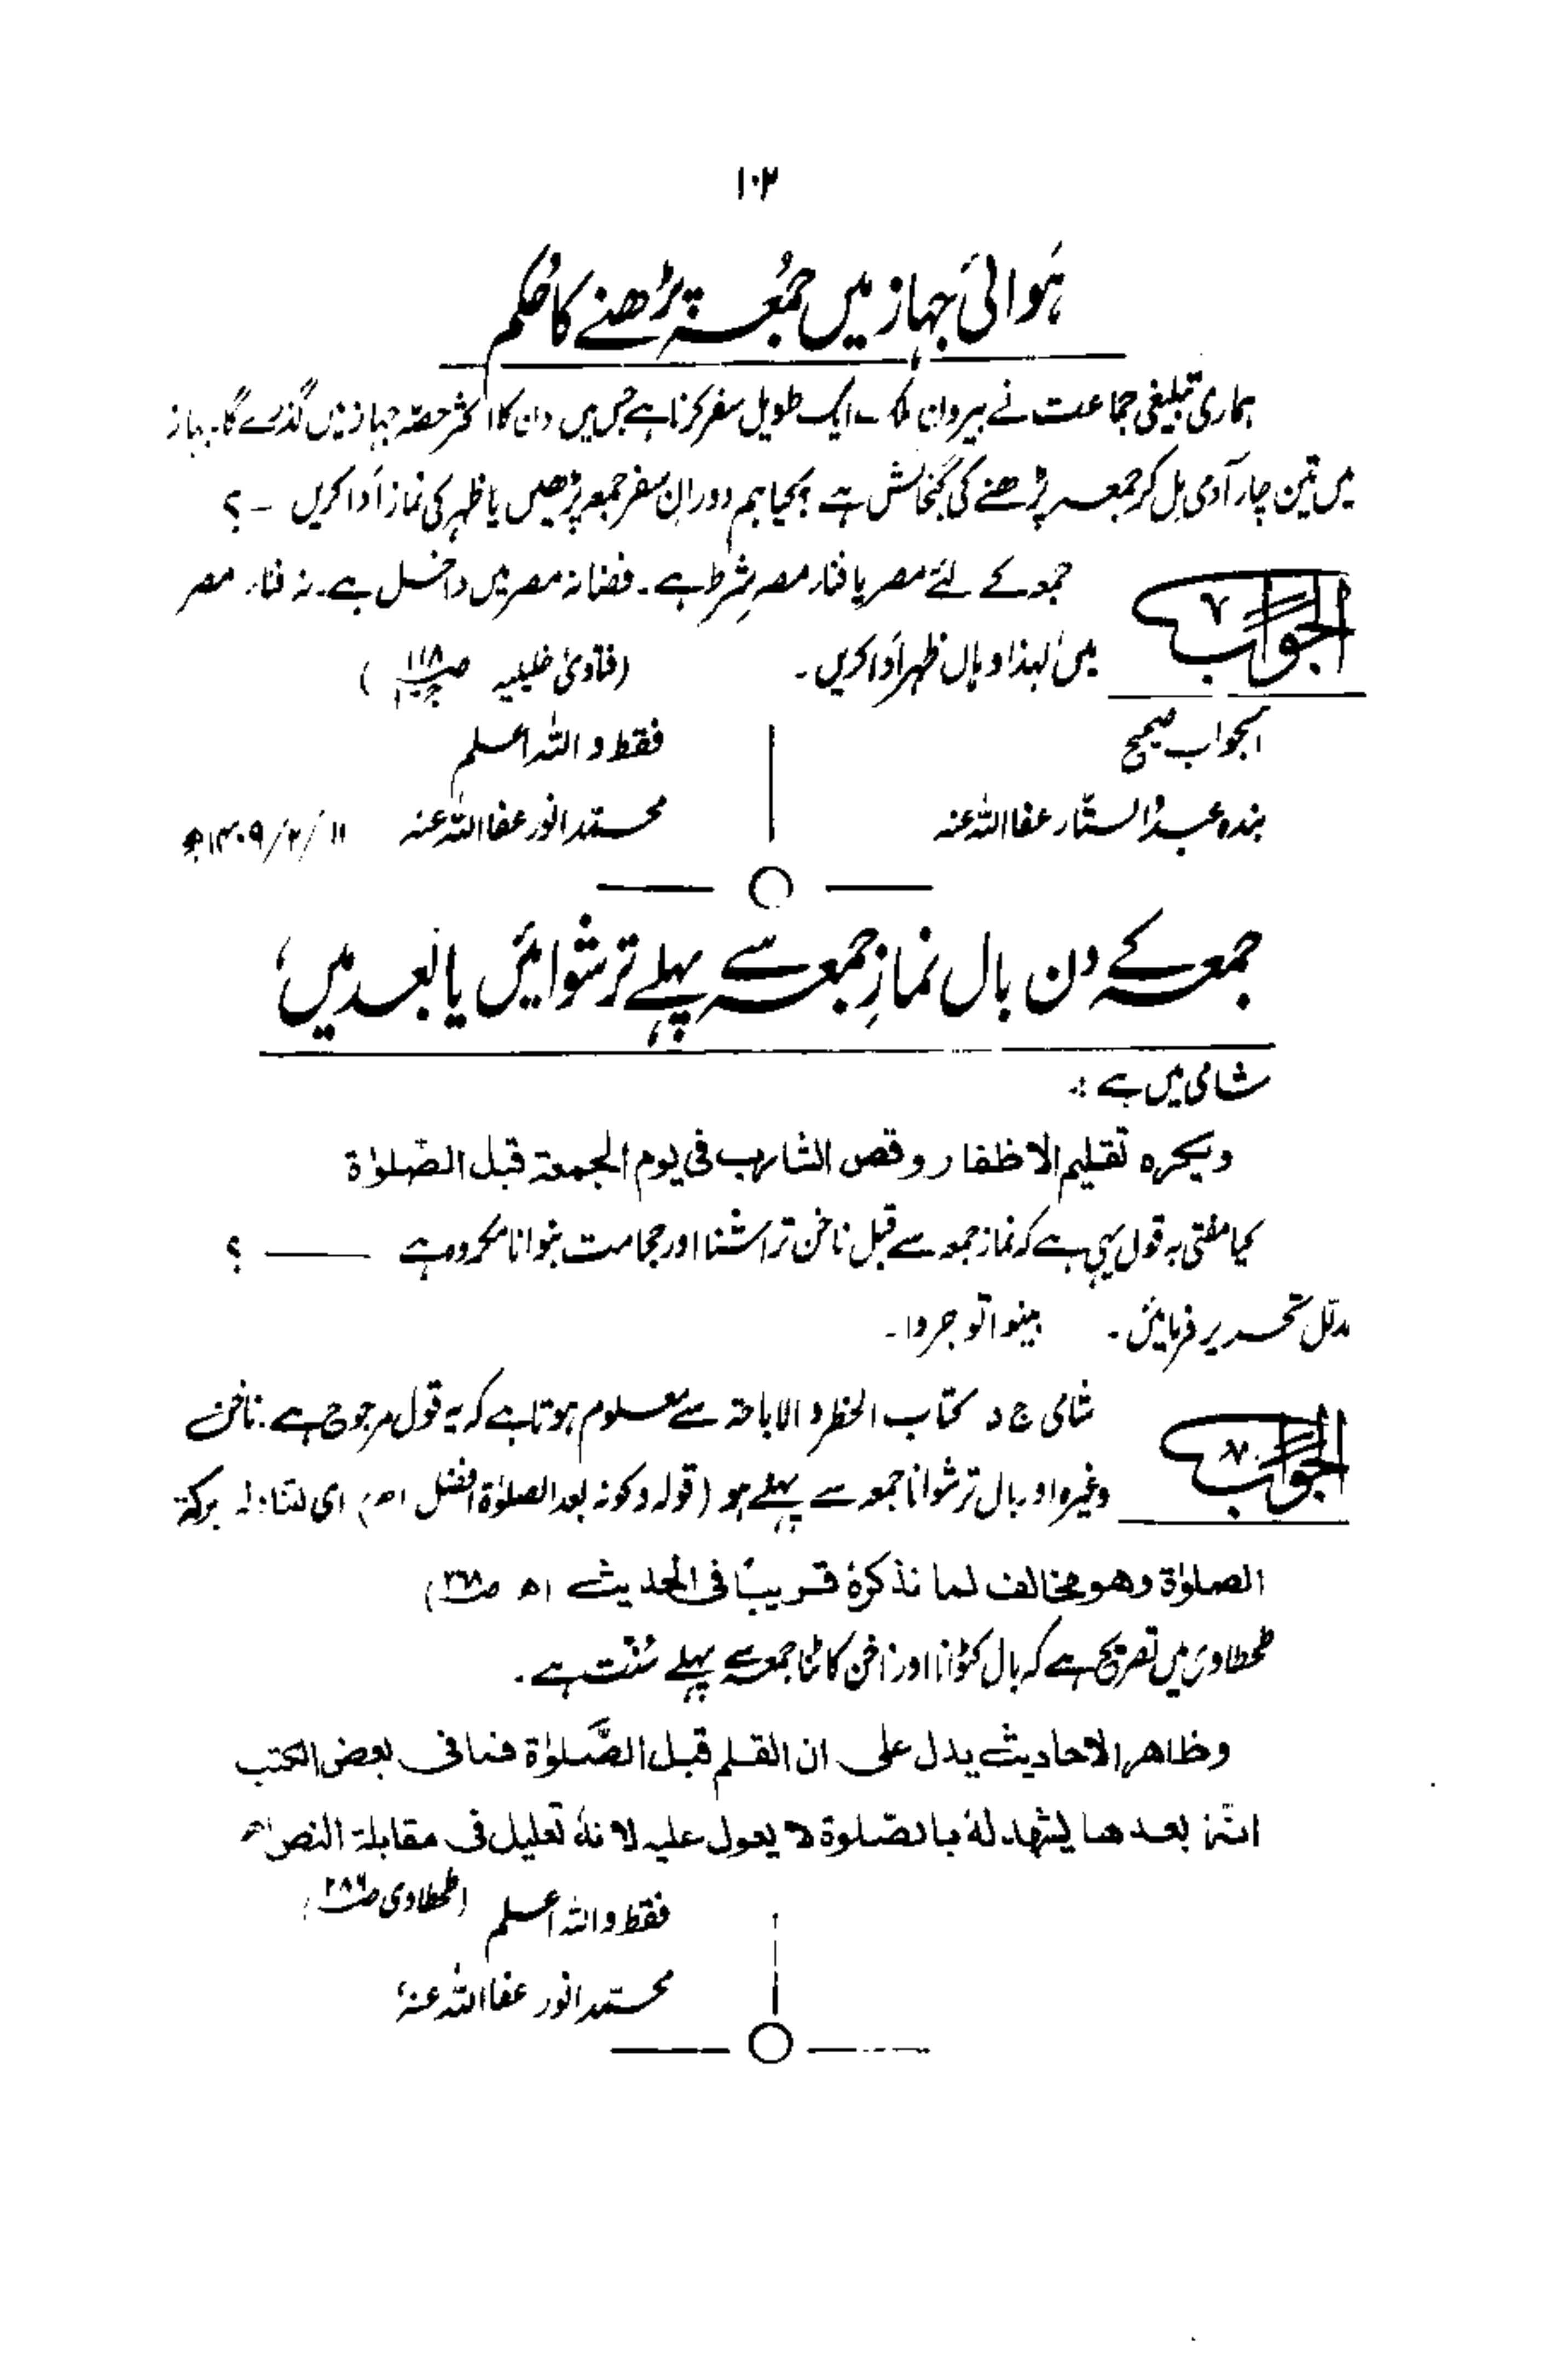 ١٠٢
ہوائی جہاز میں جمعہ پڑھنے کا حکم
ہماری تبلیغی جماعت نے بیرون ملک ایک طویل سفر کرنا ہے جس میں دن کا اکثر حصہ جہاز میں گذرے گا۔ جہاز
میں تین چار آدمی مل کر جمعہ پڑھنے کی گنجائش ہے ، کیا ہم دورانِ سفر جمعہ پڑھیں یا ظہر کی نماز اَدا کریں ۔ ؟
الجواب جمعہ کے لئے مصر یا فنار مصر شرط ہے ۔ فضا نہ مصر میں داخل ہے ۔ نہ فنار مصر
میں لہذا وہاں ظہر اَدا کریں ۔ (فتاویٰ خلیلیہ ص۱۱۸)
الجواب صحیح فقط واللہ اعلم
بندہ عبدالستار عفا اللہ عنہ محمد انور عفا اللہ عنہ ١١/٢/١٤٠٩ھ
جمعہ کے دن بال نمازِ جمعہ سے پہلے ترشوائیں یا بعد میں؟
شامی میں ہے :
ويكره تقليم الاظفار وقص الشارب فى يوم الجمعة قبل الصّلوٰة
کیا مفتی بہ قول یہی ہے کہ نماز جمعہ سے قبل ناخن تراشنا اور حجامت بنوانا مکروہ ہے ——— ؟
مدلّل تحریر فرمائیں ۔ بینوا توجروا ۔
الجواب شامی ج ٥ کتاب الحظر و الاباحۃ سے معلوم ہوتا ہے کہ یہ قول مرجوح ہے ۔ ناخن
وغیرہ اور بال ترشوانا جمعہ سے پہلے ہو (قولہ وکونہ بعد الصلوٰۃ افضل اھ) ای لتنالہ برکۃ
الصلوٰة وهو مخالف لما نذكرهٗ قريبًا فى الحديث اھ (ص۲۶۸)
طحطاوی میں تصریح ہے کہ بال کٹوانا اور ناخن کاٹنا جمعہ سے پہلے سُنّت ہے ۔
وظاهر الاحاديث يدل على ان القلم قبل الصَّلوٰة فما فى بعض الكتب
انّہٗ بعدها ليشهد لهٗ بالصّلوة لا يعول عليہ لانهٗ تعليل فى مقابلة النص اھ
فقط واللہ اعلم (طحطاوی ص۲۸۶)
محمد انور عفا اللہ عنہٗ